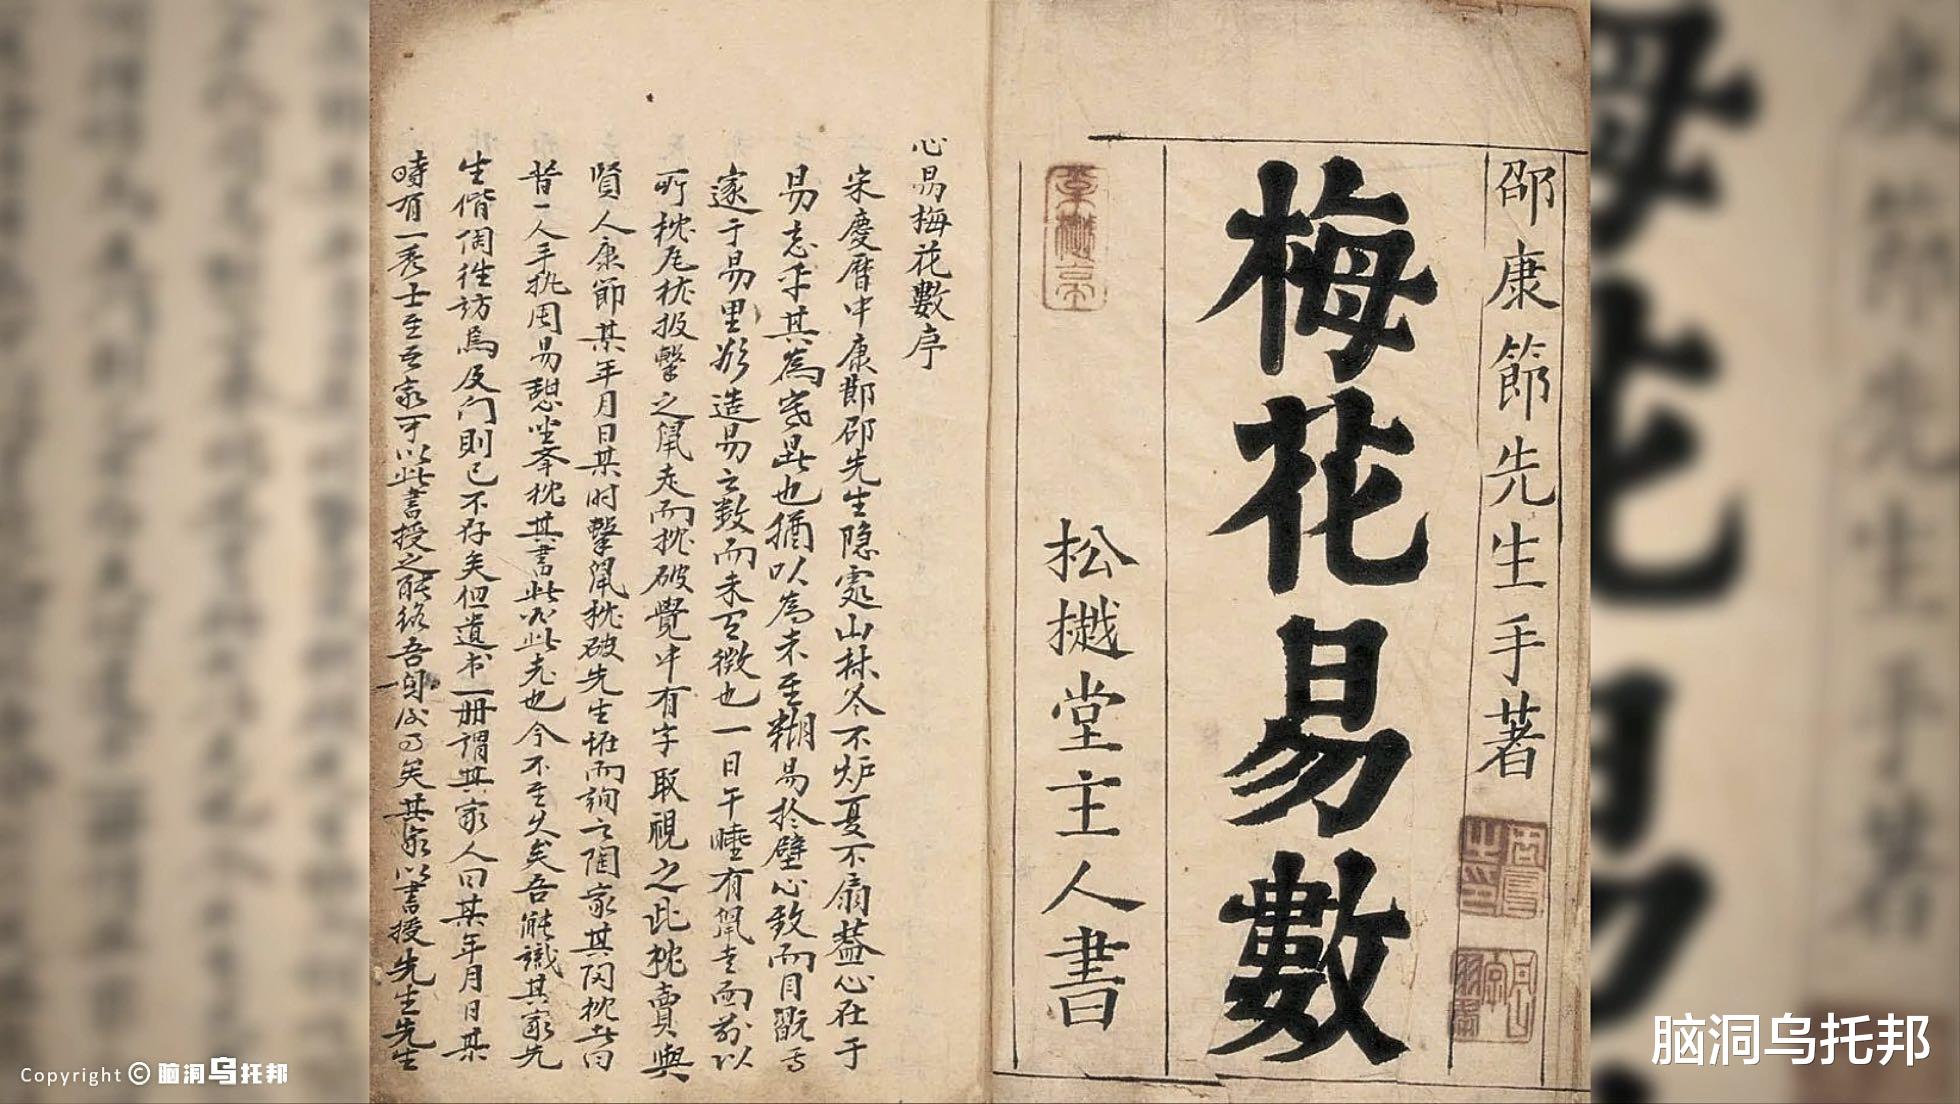 邵康節先生手著
梅花易數
松樾堂主人書
心易梅花數序
宋慶曆中康節邵先生隐處山林冬不炉夏不扇蓋心在于
易忘乎其為寒暑也猶以為未至糊易於壁心致而目翫焉
邃于易里欲造易之數而未有徵也一日午睡有鼠走而前以
所枕瓦枕投擊之鼠走而枕破覺中有字取視之此枕賣與
賢人康節某年月日某时擊鼠枕破先生怪而詢之陶家其陶枕者曰
昔一人手执周易憩坐举枕其書此必此老也今不至久矣吾能識其家先
生偕陶往访焉及门則已不存矣但遺书一册謂其家人曰某年月日某
時有一秀士至吾家可以此書授之能終吾身后事矣其家以書授先生先生
脑洞乌托邦
Copyright © 脑洞乌托邦